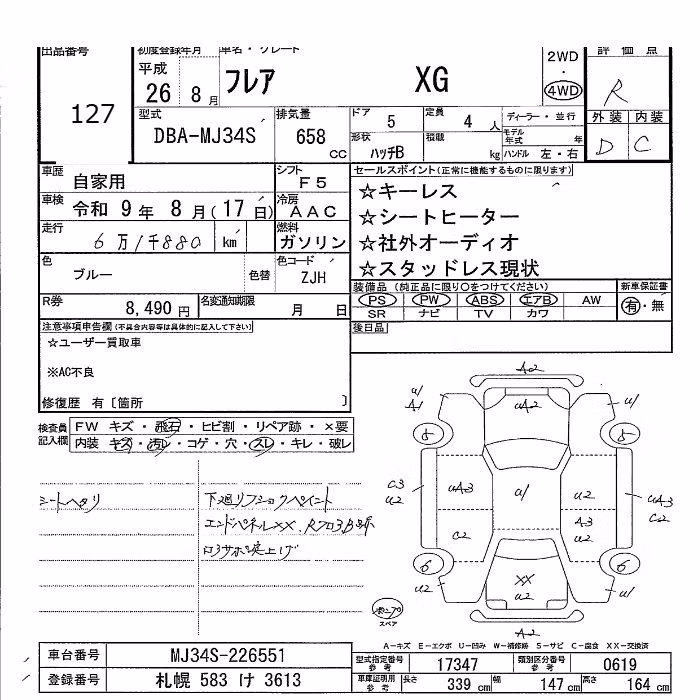 出品番号 初度登録年月 車名・グレード 2WD 評価点
127 平成 26年 8月 フレア XG ・ 4WD R
型式 DBA-MJ34S 排気量 658 CC
ドア 5 定員 4人 ディーラー・並行 外装 内装
形状 ハッチB 積載 kg モデル年式 年 D C
ハンドル 左・右
車歴 自家用 シフト F5
車検 令和 9年 8月(17日) 冷房 AAC
走行 6万1千880 km 燃料 ガソリン
色 ブルー 色替 色コード ZJH
R券 8,490円 名変通知期限 月 日
セールスポイント(正常に機能するものに限ります)
☆キーレス
☆シートヒーター
☆社外オーディオ
☆スタッドレス現状
装備品(純正品に限り○をつけてください) 新車保証書
PS PW ABS エアB AW 有・無
SR ナビ TV カワ
後日品
注意事項申告欄(不具合内容等は具体的に記入して下さい)
☆ユーザー買取車
※AC不良
修復歴 有〔箇所 〕
検査員記入欄
FW キズ・飛石・ヒビ割・リペア跡・×要
内装 キズ・汚レ・コゲ・穴・スレ・キレ・破レ
シートヘタリ
下廻リフショクペイント
エンドパネルXX.
A2
u/ A1 uA2 u/
8 8
C3 u2 uA3 u/ u2 uA3 C2
C2 A3 u2
6 6
u2 XX u2 u/
A2
スペア
A－キズ E－エクボ U－凹み W－補修跡 S－サビ C－腐食 XX－交換済
車台番号 MJ34S-226551
登録番号 札幌 583 け 3613
型式指定番号 参考 17347 類別区分番号 参考 0619
車庫証明用 参考 長さ 339 cm 幅 147 cm 高さ 164 cm